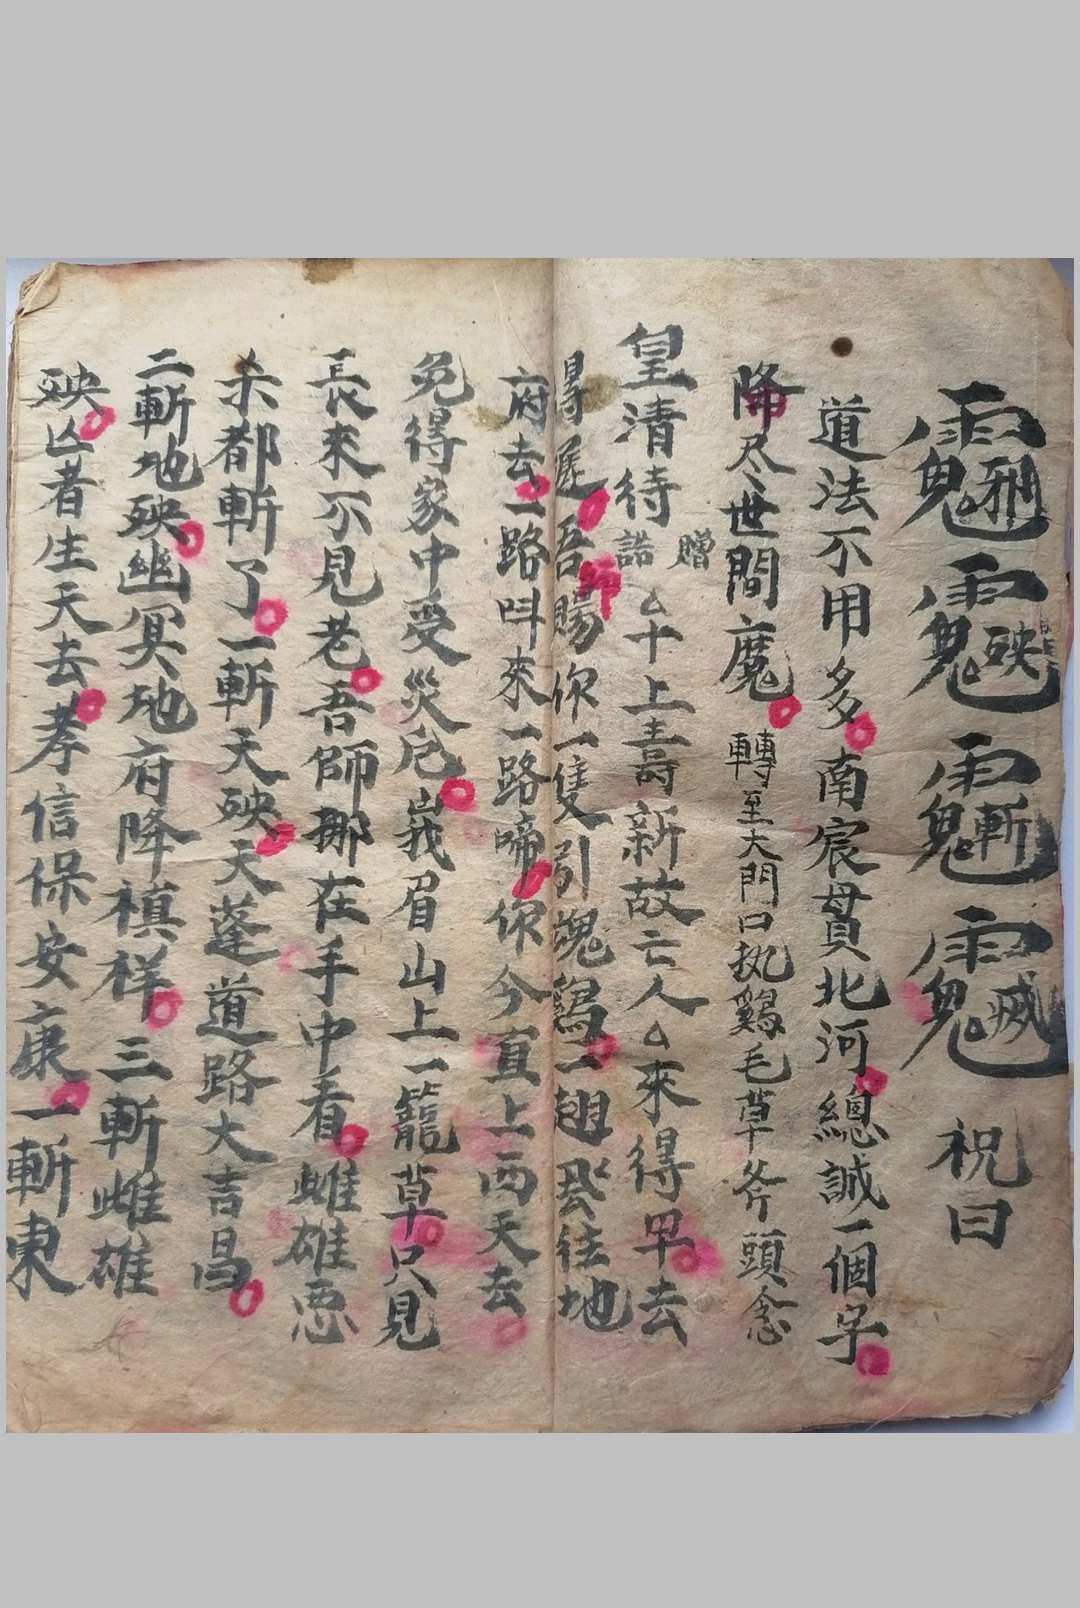 祝曰
道法不用多南宸貫北河總誠一個字
降尽世間魔轉至大門口执鷄毛草斧頭念
皇清待
贈
誥
厶十上壽新故亡人厶來得早去
得遲吾師賜你一隻引魂鷄一翅飛往地
府去一路呌來一路啼你今直上西天去
免得家中受災危峩眉山上一籠草只見
長來不見老吾師挪在手中看雌雄惡
杀都斬了一斬天殃天蓬道路大吉昌
二斬地殃幽冥地府降禎祥三斬雌雄
殃凶者生天去孝信保安康一斬東